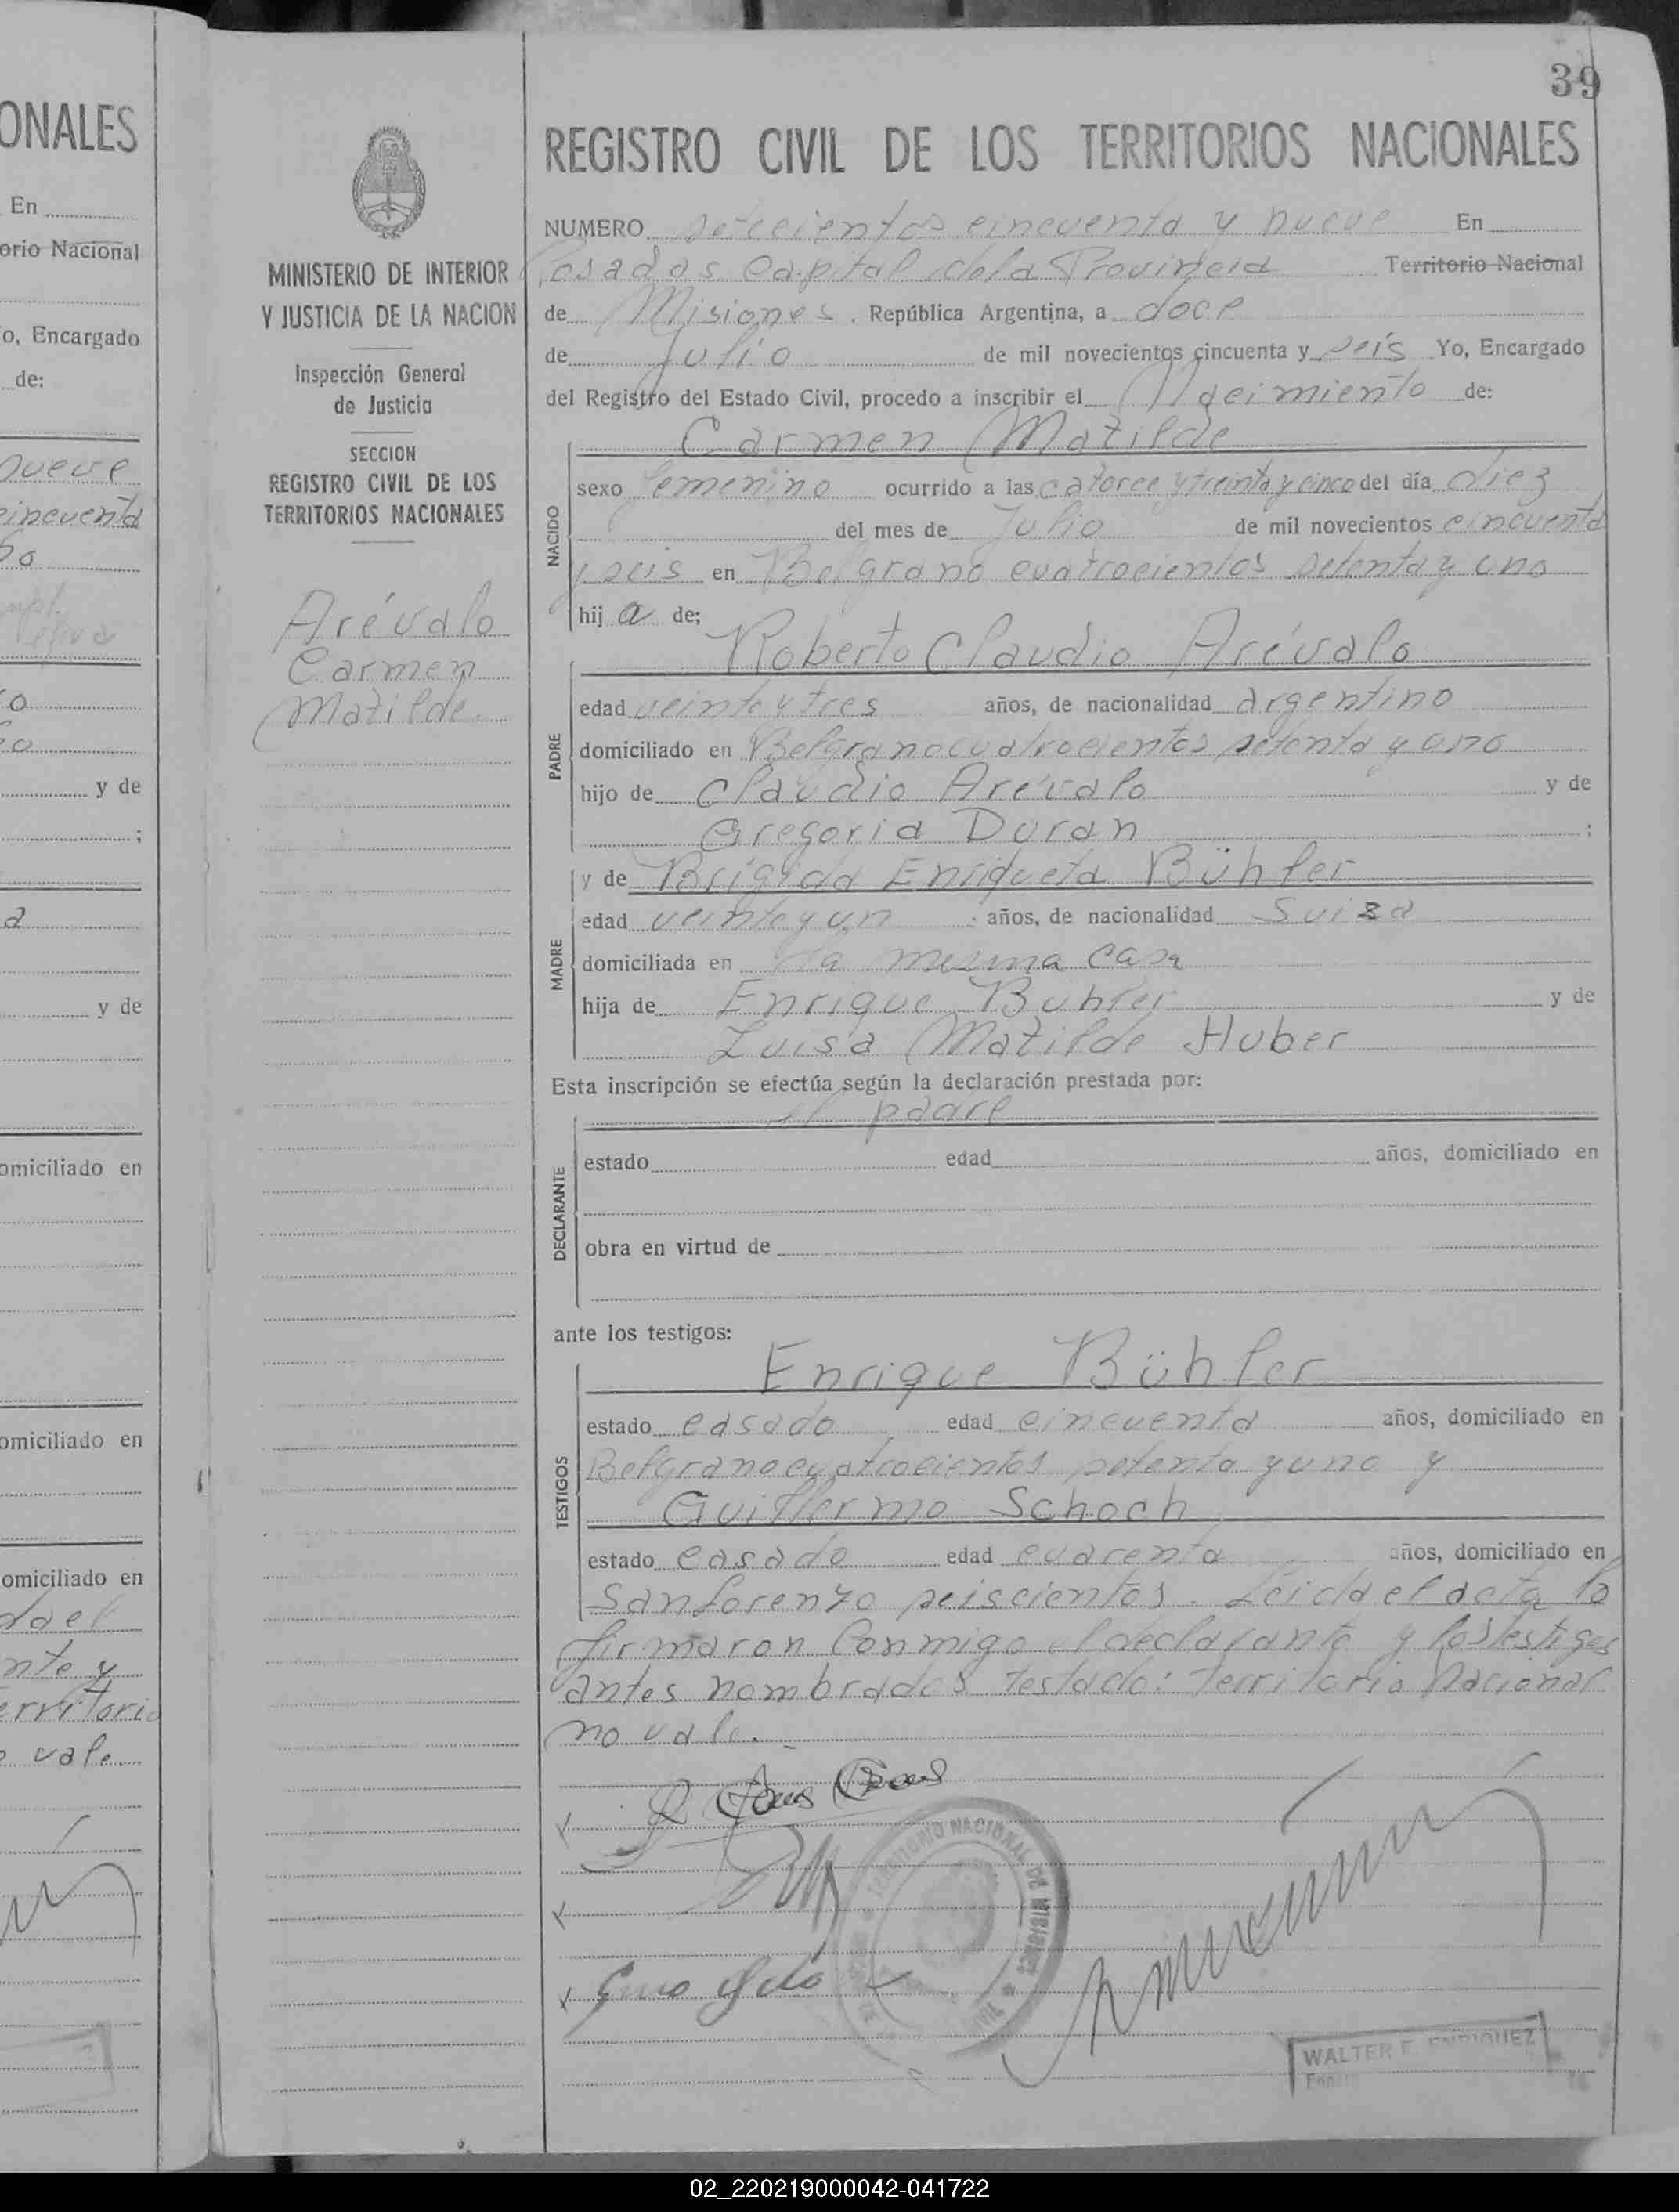 ONALES
En
orio Nacional
o, Encargado
de:
nueve
cincuenta
y de
;
a
y de
omiciliado en
omiciliado en
omiciliado en
nte y
erritorio
vale.
39
MINISTERIO DE INTERIOR
Y JUSTICIA DE LA NACION
Inspección General
de Justicia
SECCION
REGISTRO CIVIL DE LOS
TERRITORIOS NACIONALES
Arévalo
Carmen
Matilde.
REGISTRO CIVIL DE LOS TERRITORIOS NACIONALES
NUMERO setecientos cincuenta y nueve En
Posadas Capital de la Provincia Territorio Nacional
de Misiones, República Argentina, a doce
de Julio de mil novecientos cincuenta y seis Yo, Encargado
del Registro del Estado Civil, procedo a inscribir el Nacimiento de:
Carmen Matilde
NACIDO
sexo femenino ocurrido a las catorce y treinta y cinco del día diez
del mes de Julio de mil novecientos cincuenta
y seis en Belgrano cuatrocientos setenta y uno
hij a de:
Roberto Claudio Arévalo
PADRE
edad veinte y tres años, de nacionalidad argentino
domiciliado en Belgrano cuatrocientos setenta y uno
hijo de Claudio Arévalo y de
Gregoria Duran ;
y de Brígida Enriqueta Bühler
MADRE
edad veinte y un años, de nacionalidad Suiza
domiciliada en la misma casa
hija de Enrique Buhler y de
Luisa Matilde Huber
Esta inscripción se efectúa según la declaración prestada por:
el padre
DECLARANTE
estado edad años, domiciliado en
obra en virtud de
ante los testigos:
Enrique Bühler
TESTIGOS
estado casado edad cincuenta años, domiciliado en
Belgrano cuatrocientos setenta y uno y
Guillermo Schoch
estado casado edad cuarenta años, domiciliado en
San Lorenzo seiscientos. Leida el acta lo
firmaron conmigo el declarante y los testigos
antes nombrados testado: Territorio Nacional
no vale.
TERRITORIO NACIONAL DE MISIONES
WALTER F. ENRIQUEZ
02_220219000042-041722